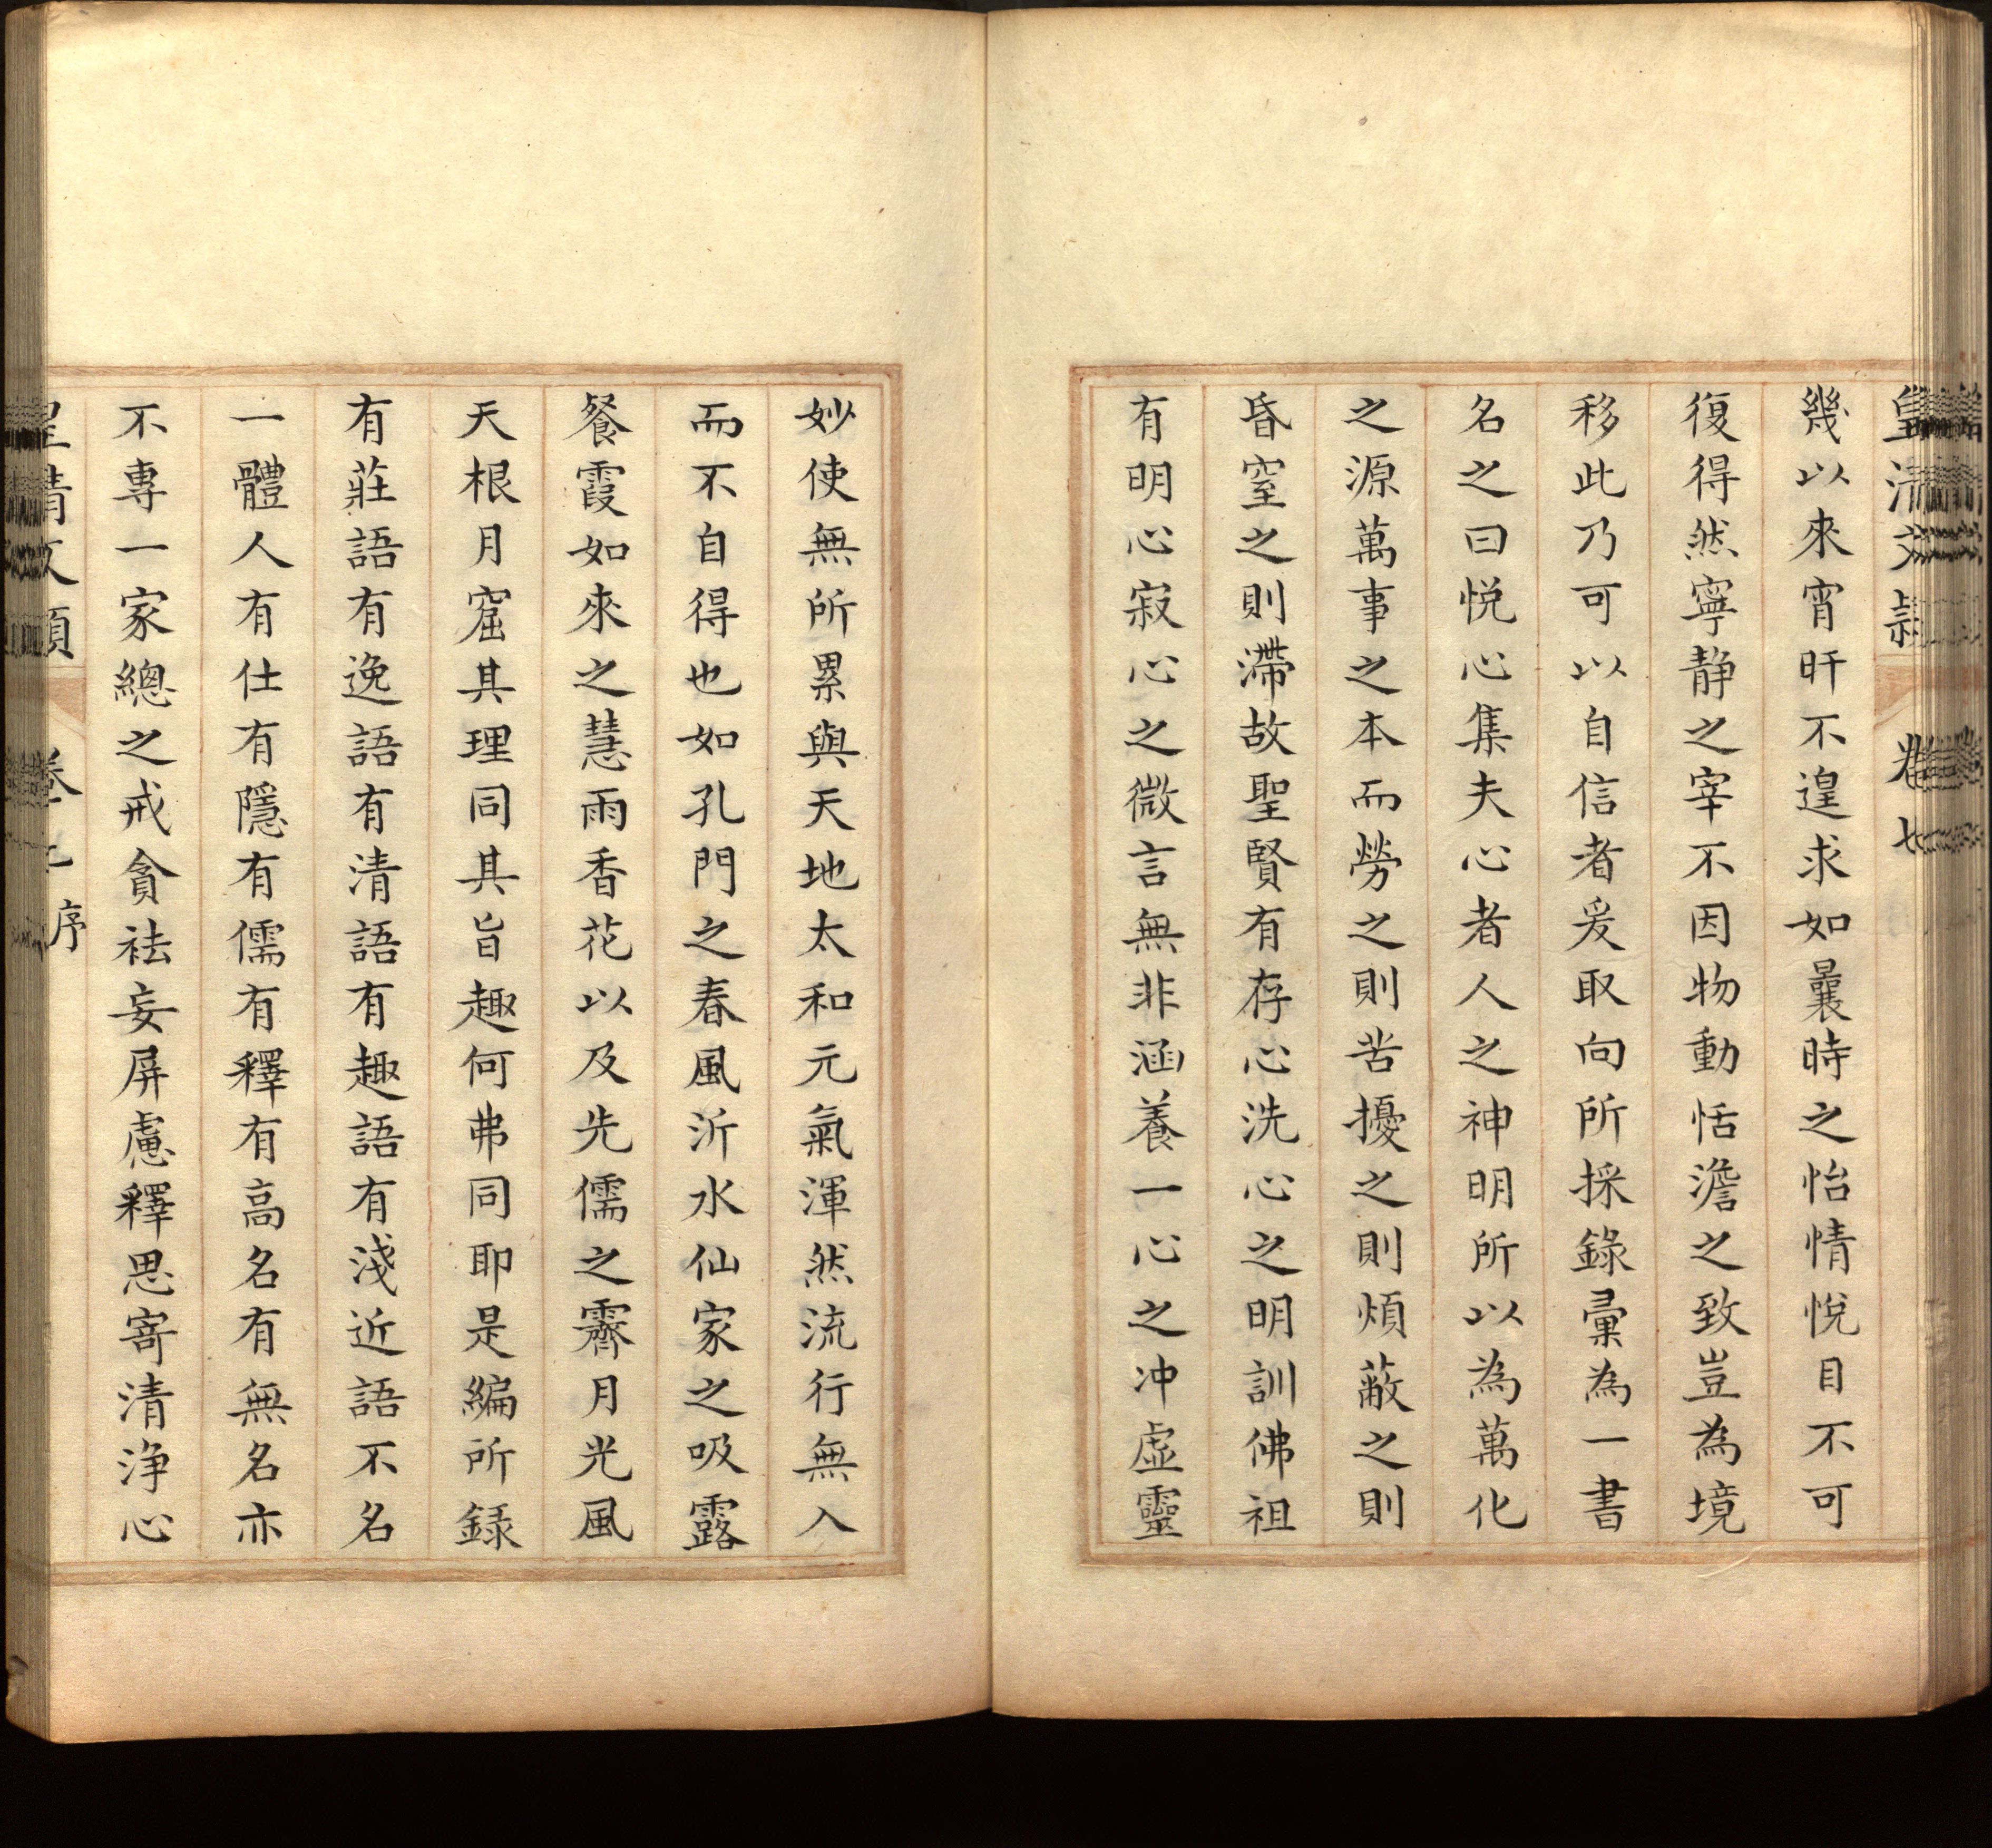 皇清文穎
卷七
幾以來宵旰不遑求如曩時之怡情悅目不可
復得然寧静之宰不因物動恬澹之致豈為境
移此乃可以自信者爰取向所採錄彙為一書
名之曰悅心集夫心者人之神明所以為萬化
之源萬事之本而勞之則苦擾之則煩蔽之則
昏窒之則滯故聖賢有存心洗心之明訓佛祖
有明心寂心之微言無非涵養一心之冲虛靈
妙使無所累與天地太和元氣渾然流行無入
而不自得也如孔門之春風沂水仙家之吸露
餐霞如來之慧雨香花以及先儒之霽月光風
天根月窟其理同其旨趣何弗同耶是編所録
有莊語有逸語有清語有趣語有淺近語不名
一體人有仕有隱有儒有釋有高名有無名亦
不專一家總之戒貪袪妄屏慮釋思寄清净心
皇清文穎
卷七 序